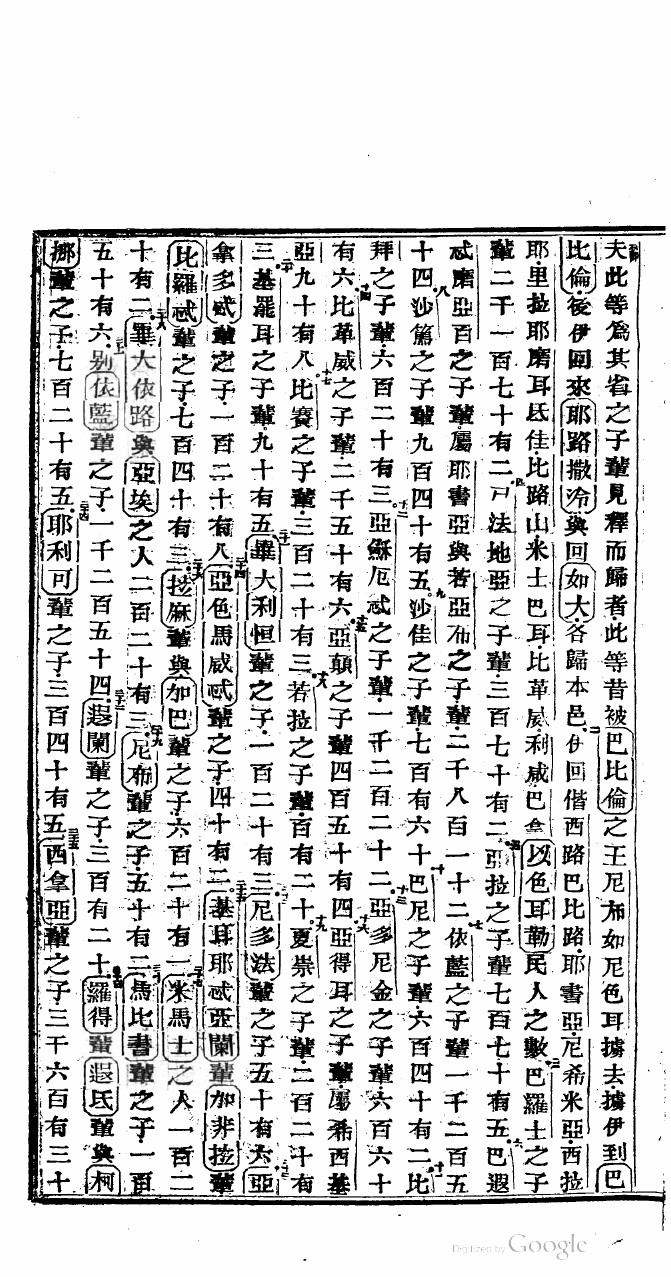 夫此等爲其省之子輩見釋而歸者此等昔被巴比倫之王尼布如尼色耳擄去擄伊到巴
比倫後伊回來耶路撒冷與回如大各歸本邑伊回偕西路巴比路耶書亞尼希米亞西拉
耶里拉耶磨耳氐佳比路山米士巴耳比革威利咸巴拿以色耳勒民人之數巴羅士之子
輩二千一百七十有二四法地亞之子輩三百七十有二五亞拉之子輩七百七十有五六巴遐
忒磨亞百之子輩屬耶書亞與若亞布之子輩二千八百一十二七依藍之子輩一千二百五
十四八沙篤之子輩九百四十有五九沙佳之子輩七百有六十十巴尼之子輩六百四十有二十一比
拜之子輩六百二十有三十二亞穌厄忒之子輩一千二百二十二十三亞多尼金之子輩六百六十
有六十四比革威之子輩二千五十有六十五亞顛之子輩四百五十有四十六亞得耳之子輩屬希西基
亞九十有八十七比賽之子輩三百二十有三十八若拉之子輩百有二十九夏崇之子輩二百二十有
三二十基罷耳之子輩九十有五二十一畢大利恒輩之子一百二十有三二十二尼多法輩之子五十有六二十三亞
拿多忒輩之子一百二十有八二十四亞色馬威忒輩之子四十有二二十五基耳耶忒亞蘭輩加非拉輩
比羅忒輩之子七百四十有三二十六拉麻輩與加巴輩之子六百二十有一二十七米馬士之人一百二
十有二二十八畢大依路與亞埃之人二百二十有三二十九尼布輩之子五十有二三十馬比書輩之子一百
五十有六三十一別依藍輩之子一千二百五十四三十二遐闌輩之子三百有二十三十三羅得輩遐氐輩與柯
挪輩之子七百二十有五三十四耶利可輩之子三百四十有五三十五西拿亞輩之子三千六百有三十
Digitized by Google